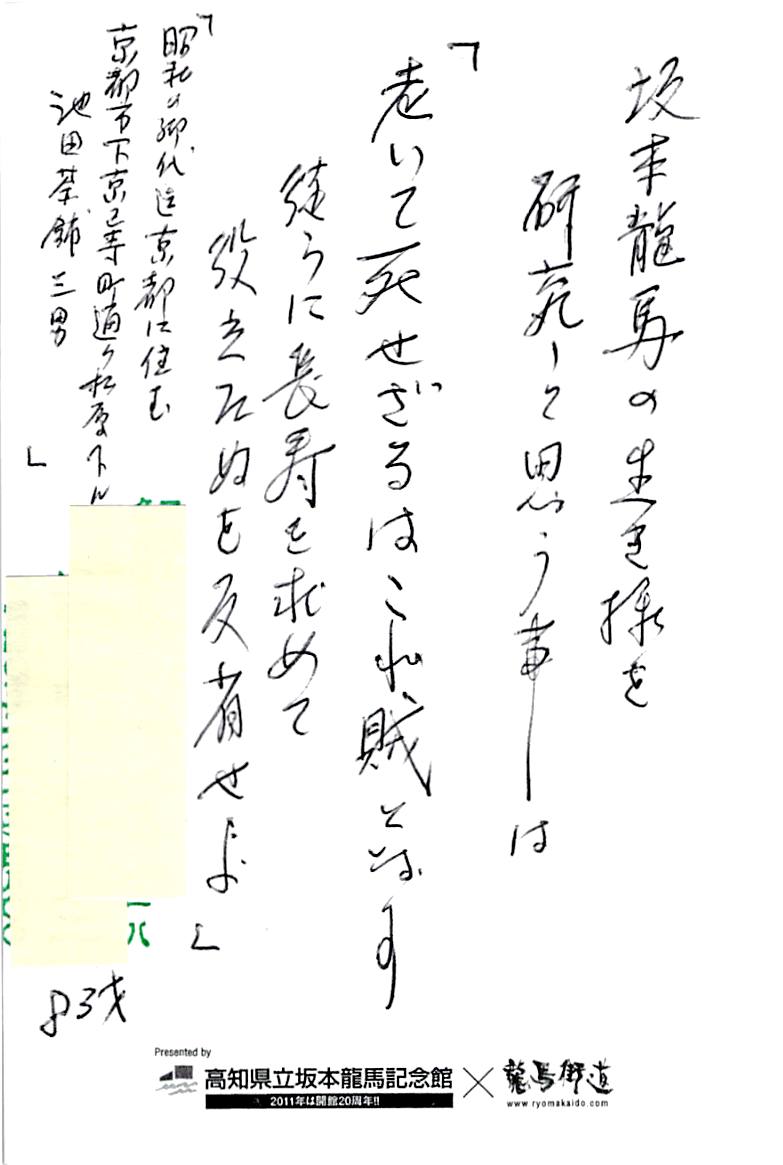 坂本龍馬の生き様を
研究して思う事は
「老いて死せざるはこれ賊となす
徒らに長寿を求めて
役立たぬを反省せよ」
「昭和の御代迄京都に住む
京都市下京区寺町通り松原下ル
池田茶舗三男
」
八
83才
Presented by
高知県立坂本龍馬記念館
2011年は開館20周年!!
×
龍馬街道
www.ryomakaido.com